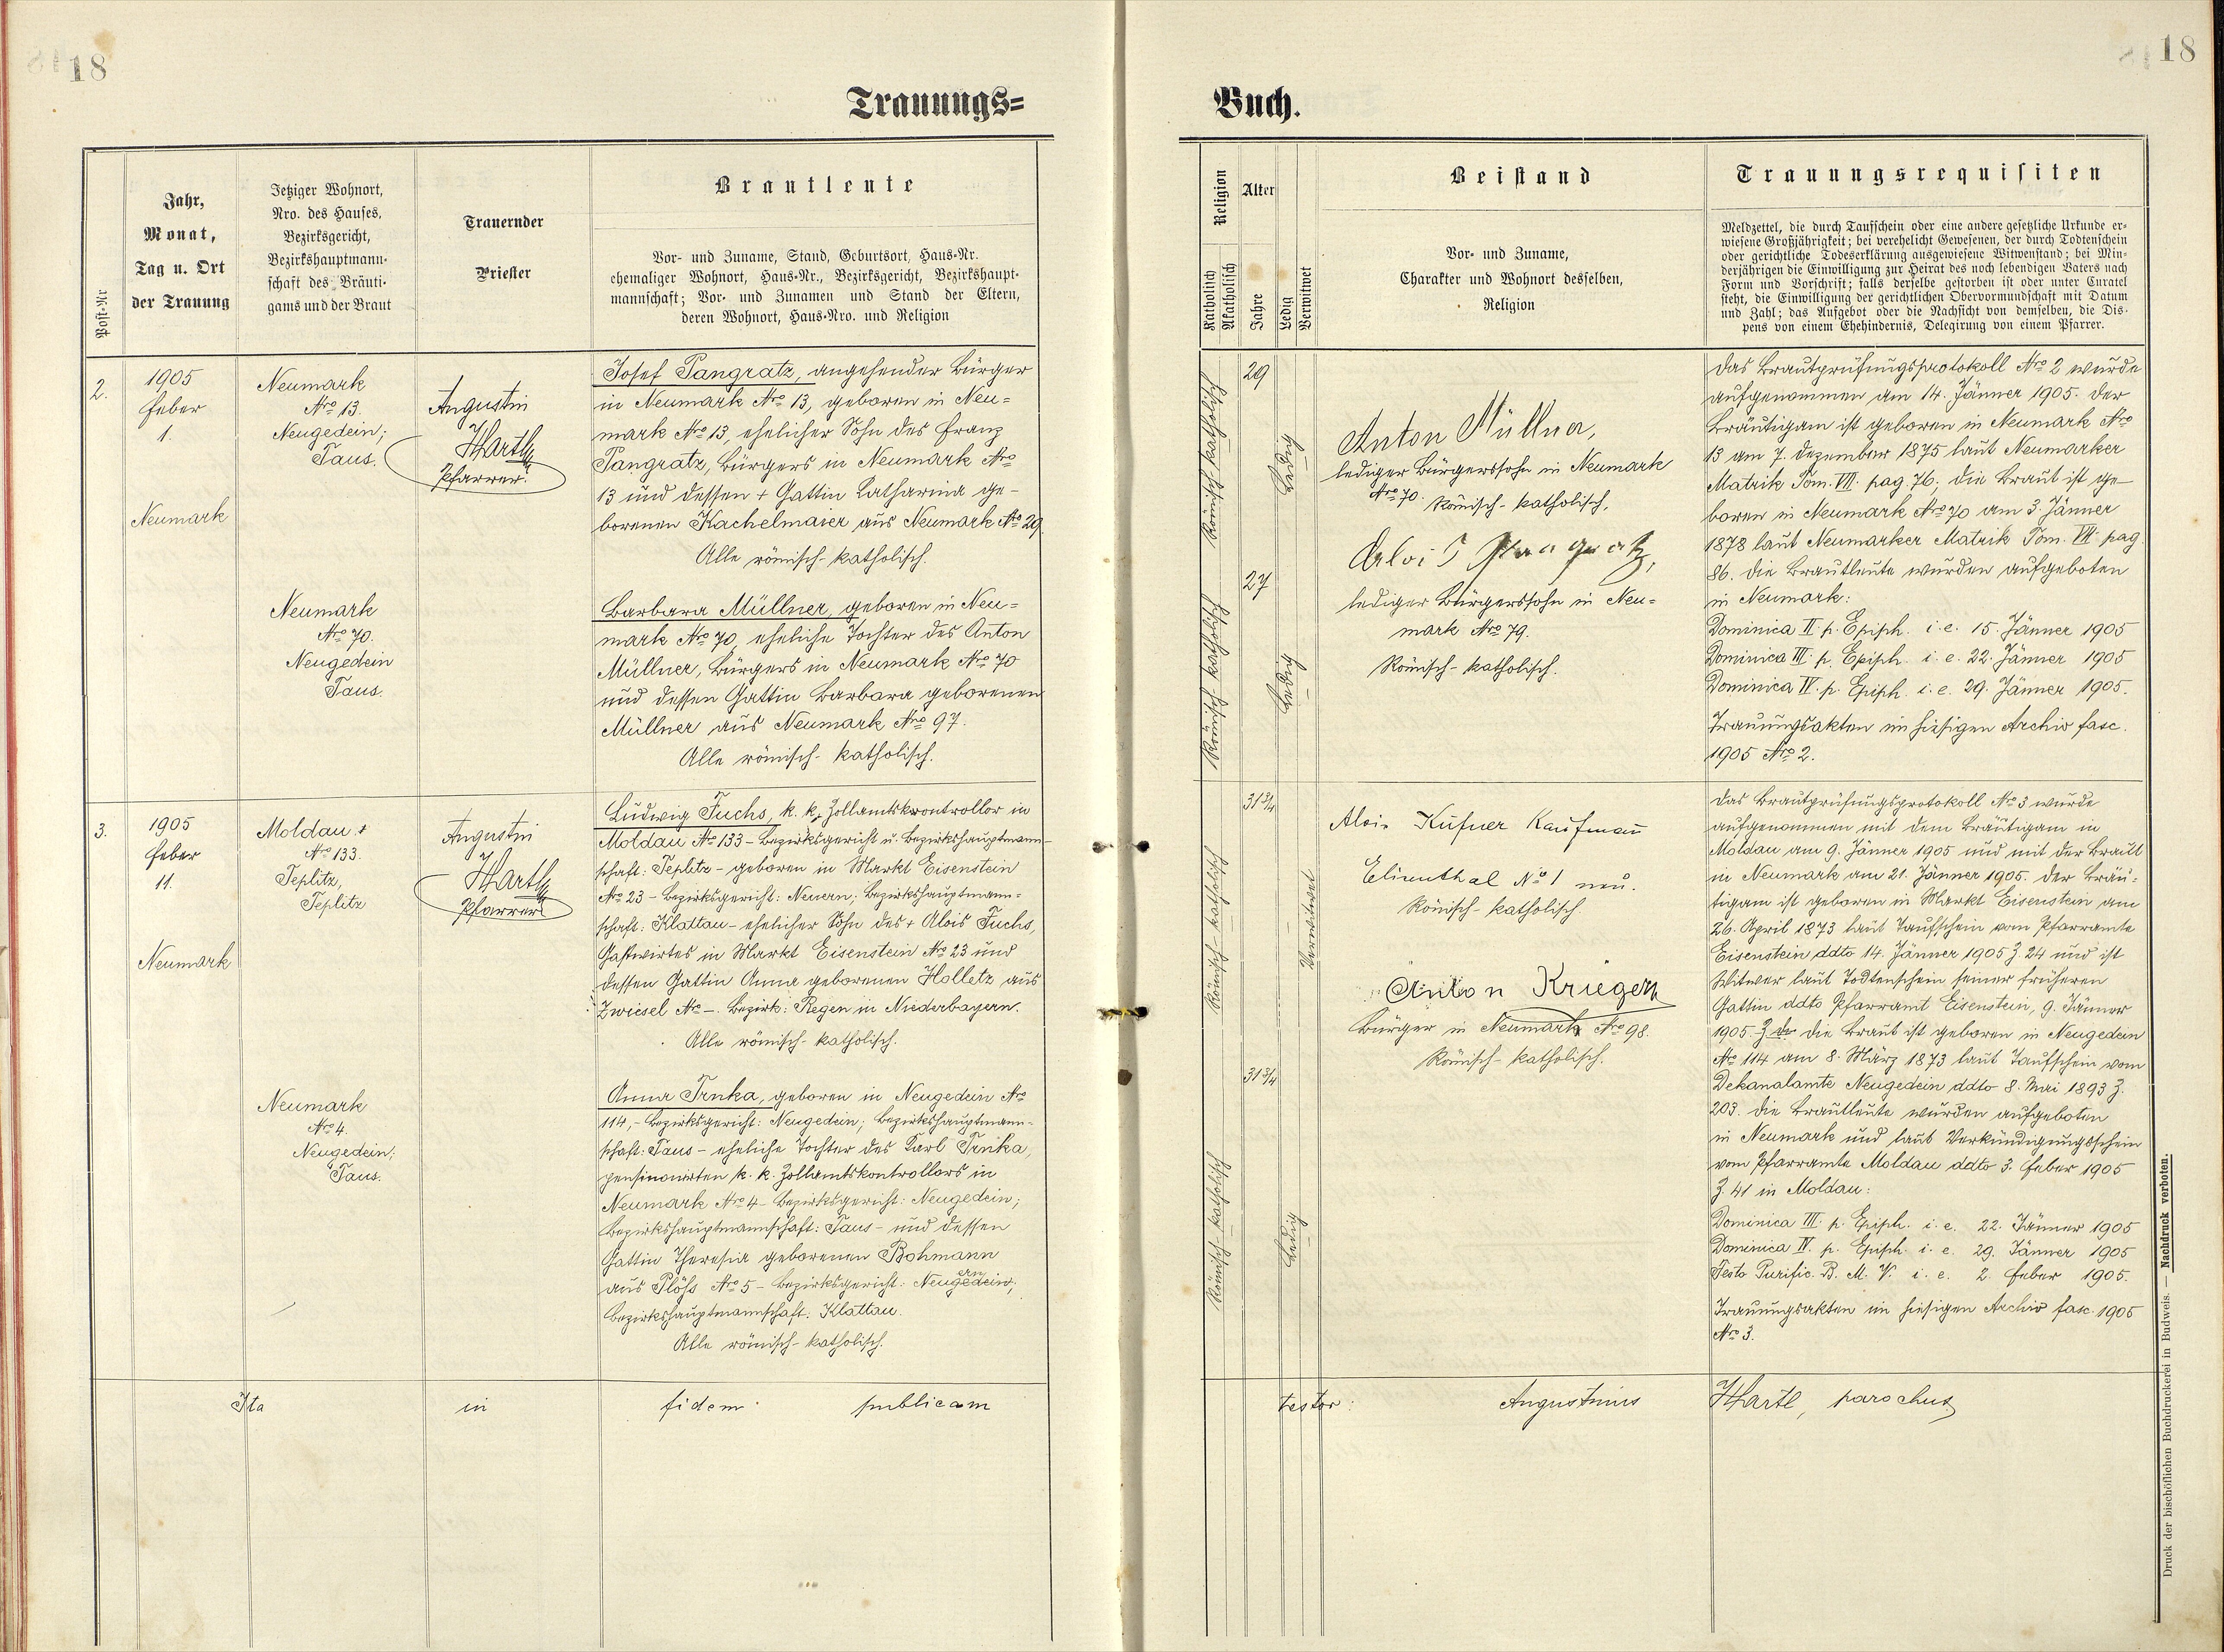 18
18
Trauungs=
Buch.
Post-Nr
Jahr,
Monat,
Tag u. Ort
der Trauung
Jetziger Wohnort,
Nro. des Hauses,
Bezirksgericht,
Bezirkshauptmann-
schaft des Bräuti-
gams und der Braut
Trauernder
Priester
Brautleute
Vor- und Zuname, Stand, Geburtsort, Haus-Nr.
ehemaliger Wohnort, Haus-Nr., Bezirksgericht, Bezirkshaupt-
mannschaft; Vor- und Zunamen und Stand der Eltern,
deren Wohnort, Haus-Nro. und Religion
Religion
Katholisch
Akatholisch
Alter
Jahre
Ledig
Verwitwet
Beistand
Vor- und Zuname,
Charakter und Wohnort desselben,
Religion
Trauungsrequisiten
Meldzettel, die durch Taufschein oder eine andere gesetzliche Urkunde er-
wiesene Großjährigkeit; bei verehelicht Gewesenen, der durch Todtenschein
oder gerichtliche Todeserklärung ausgewiesene Witwenstand; bei Min-
derjährigen die Einwilligung zur Heirat des noch lebendigen Vaters nach
Form und Vorschrift; falls derselbe gestorben ist oder unter Curatel
steht, die Einwilligung der gerichtlichen Obervormundschaft mit Datum
und Zahl; das Aufgebot oder die Nachsicht von demselben, die Dis-
pens von einem Ehehindernis, Delegirung von einem Pfarrer.
2.
1905
Feber
1.
Neumark
Neumark
Nro 13.
Neugedein;
Taus.
Augustin
Hartl
Pfarrer.
Josef Pangratz, angehender Bürger
in Neumark Nro 13, geboren in Neu=
mark Nro 13, ehelicher Sohn des Franz
Pangratz, Bürgers in Neumark Nro
13 und dessen + Gattin Katharina ge-
borenen Kachelmaier aus Neumark Nro 29.
Alle römisch-katholisch.
Neumark
Nro 70.
Neugedein
Taus.
Barbara Müllner, geboren in Neu=
mark Nro 70, eheliche Tochter des Anton
Müllner, Bürgers in Neumark Nro 70
und dessen Gattin Barbara geborenen
Müllner aus Neumark Nro 97.
Alle römisch-katholisch.
Römisch-katholisch
29
Ledig
Römisch-katholisch
27
Ledig
Anton Müllner,
lediger Bürgerssohn in Neumark
Nro 70. Römisch-katholisch.
Alois Pangratz,
lediger Bürgerssohn in Neu=
mark Nro 79.
Römisch-katholisch.
Das Brautprüfungsprotokoll Nro 2 wurde
aufgenommen am 14. Jänner 1905. Der
Bräutigam ist geboren in Neumark Nro
13 am 7. Dezember 1875 laut Neumarker
Matrik Tom. VII. pag. 76; die Braut ist ge-
boren in Neumark Nro 70 am 3. Jänner
1878 laut Neumarker Matrik Tom. VII. pag.
86. Die Brautleute wurden aufgeboten
in Neumark:
Dominica II. p. Epiph. i. e. 15. Jänner 1905
Dominica III. p. Epiph. i. e. 22. Jänner 1905
Dominica IV. p. Epiph. i. e. 29. Jänner 1905.
Trauungsakten im hiesigen Archiv fasc.
1905 Nro 2.
3.
1905
Feber
11.
Neumark
Moldau +
Nro 133.
Teplitz,
Teplitz
Augustin
Hartl
Pfarrer
Ludwig Fuchs, k. k. Zollamtskontrollor in
Moldau Nro 133 - Bezirksgericht u. Bezirkshauptmann-
schaft: Teplitz - geboren in Markt Eisenstein
Nro 23 - Bezirksgericht: Neuern; Bezirkshauptmann=
schaft: Klattau - ehelicher Sohn des + Alois Fuchs,
Gastwirtes in Markt Eisenstein Nro 23 und
dessen Gattin Anna geborenen Holletz aus
Zwiesel Nro -. Bezirk: Regen in Niederbayern.
Alle römisch-katholisch.
Neumark
Nro 4.
Neugedein;
Taus.
Anna Trnka, geboren in Neugedein Nro
114, - Bezirksgericht: Neugedein; Bezirkshauptmann-
schaft: Taus - eheliche Tochter des Karl Trnka,
pensionirten k. k. Zollamtskontrollors in
Neumark Nro 4 - Bezirksgericht: Neugedein;
Bezirkshauptmannschaft: Taus - und dessen
Gattin Theresia geborenen Bohmann
aus Plöhs Nro 5 - Bezirksgericht: Neugedein;
Bezirkshauptmannschaft: Klattau.
Alle römisch-katholisch.
Römisch-katholisch
31 3/4
Verwitwet
Römisch-katholisch
31 3/4
Ledig
Alois Kufner Kaufmann
Elisenthal No 1 neu.
Römisch-katholisch.
Anton Krieger
Bürger in Neumark Nro 98.
Römisch-katholisch.
Das Brautprüfungsprotokoll Nro 3 wurde
aufgenommen mit dem Bräutigam in
Moldau am 9. Jänner 1905 und mit der Braut
in Neumark am 21. Jänner 1905. Der Bräu-
tigam ist geboren in Markt Eisenstein am
26. April 1873 laut Taufschein vom Pfarramte
Eisenstein ddto 14. Jänner 1905 Z. 24 und ist
Witwer laut Todtenschein seiner früheren
Gattin ddto Pfarramt Eisenstein, 9. Jänner
1905. Z. Die Braut ist geboren in Neugedein
Nro 114 am 8. März 1873 laut Taufschein vom
Dekanalamte Neugedein ddto 8. Mai 1893 Z.
203. Die Brautleute wurden aufgeboten
in Neumark und laut Verkündigungsschein
vom Pfarramte Moldau ddto 3. Feber 1905
Z. 41 in Moldau:
Dominica III. p. Epiph. i. e. 22. Jänner 1905
Dominica IV. p. Epiph. i. e. 29. Jänner 1905
Festo Purific. B. M. V. i. e. 2. Feber 1905.
Trauungsakten im hiesigen Archiv fasc. 1905
Nro 3.
Ita in fidem publicam testor: Augustinus Hartl, parochus
Druck der bischöflichen Buchdruckerei in Budweis. — Nachdruck verboten.